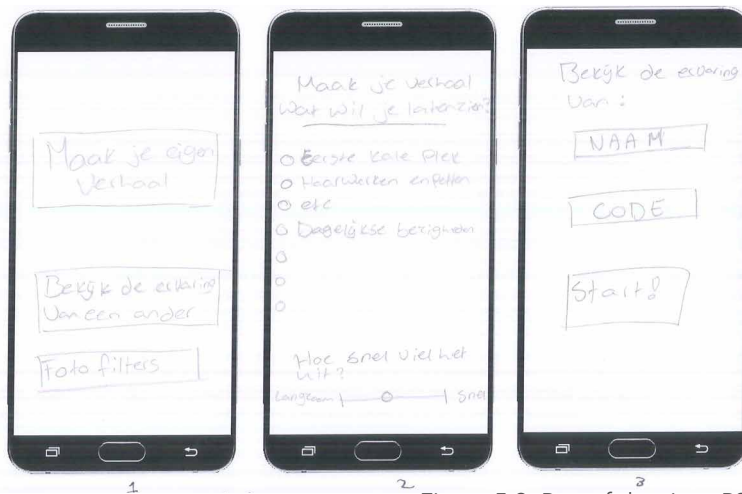 Maak je eigen
Verhaal
Bekijk de ervaring
Van een ander
Foto filters
1
Maak je verhaal
Wat wil je laten zien?
Eerste kale plek
Haarwerken en petten
etc
Dagelijkse bezigheden
Hoe snel viel het
uit?
Langzaam
Snel
2
Bekijk de ervaring
Van:
NAAM
CODE
Start!
3